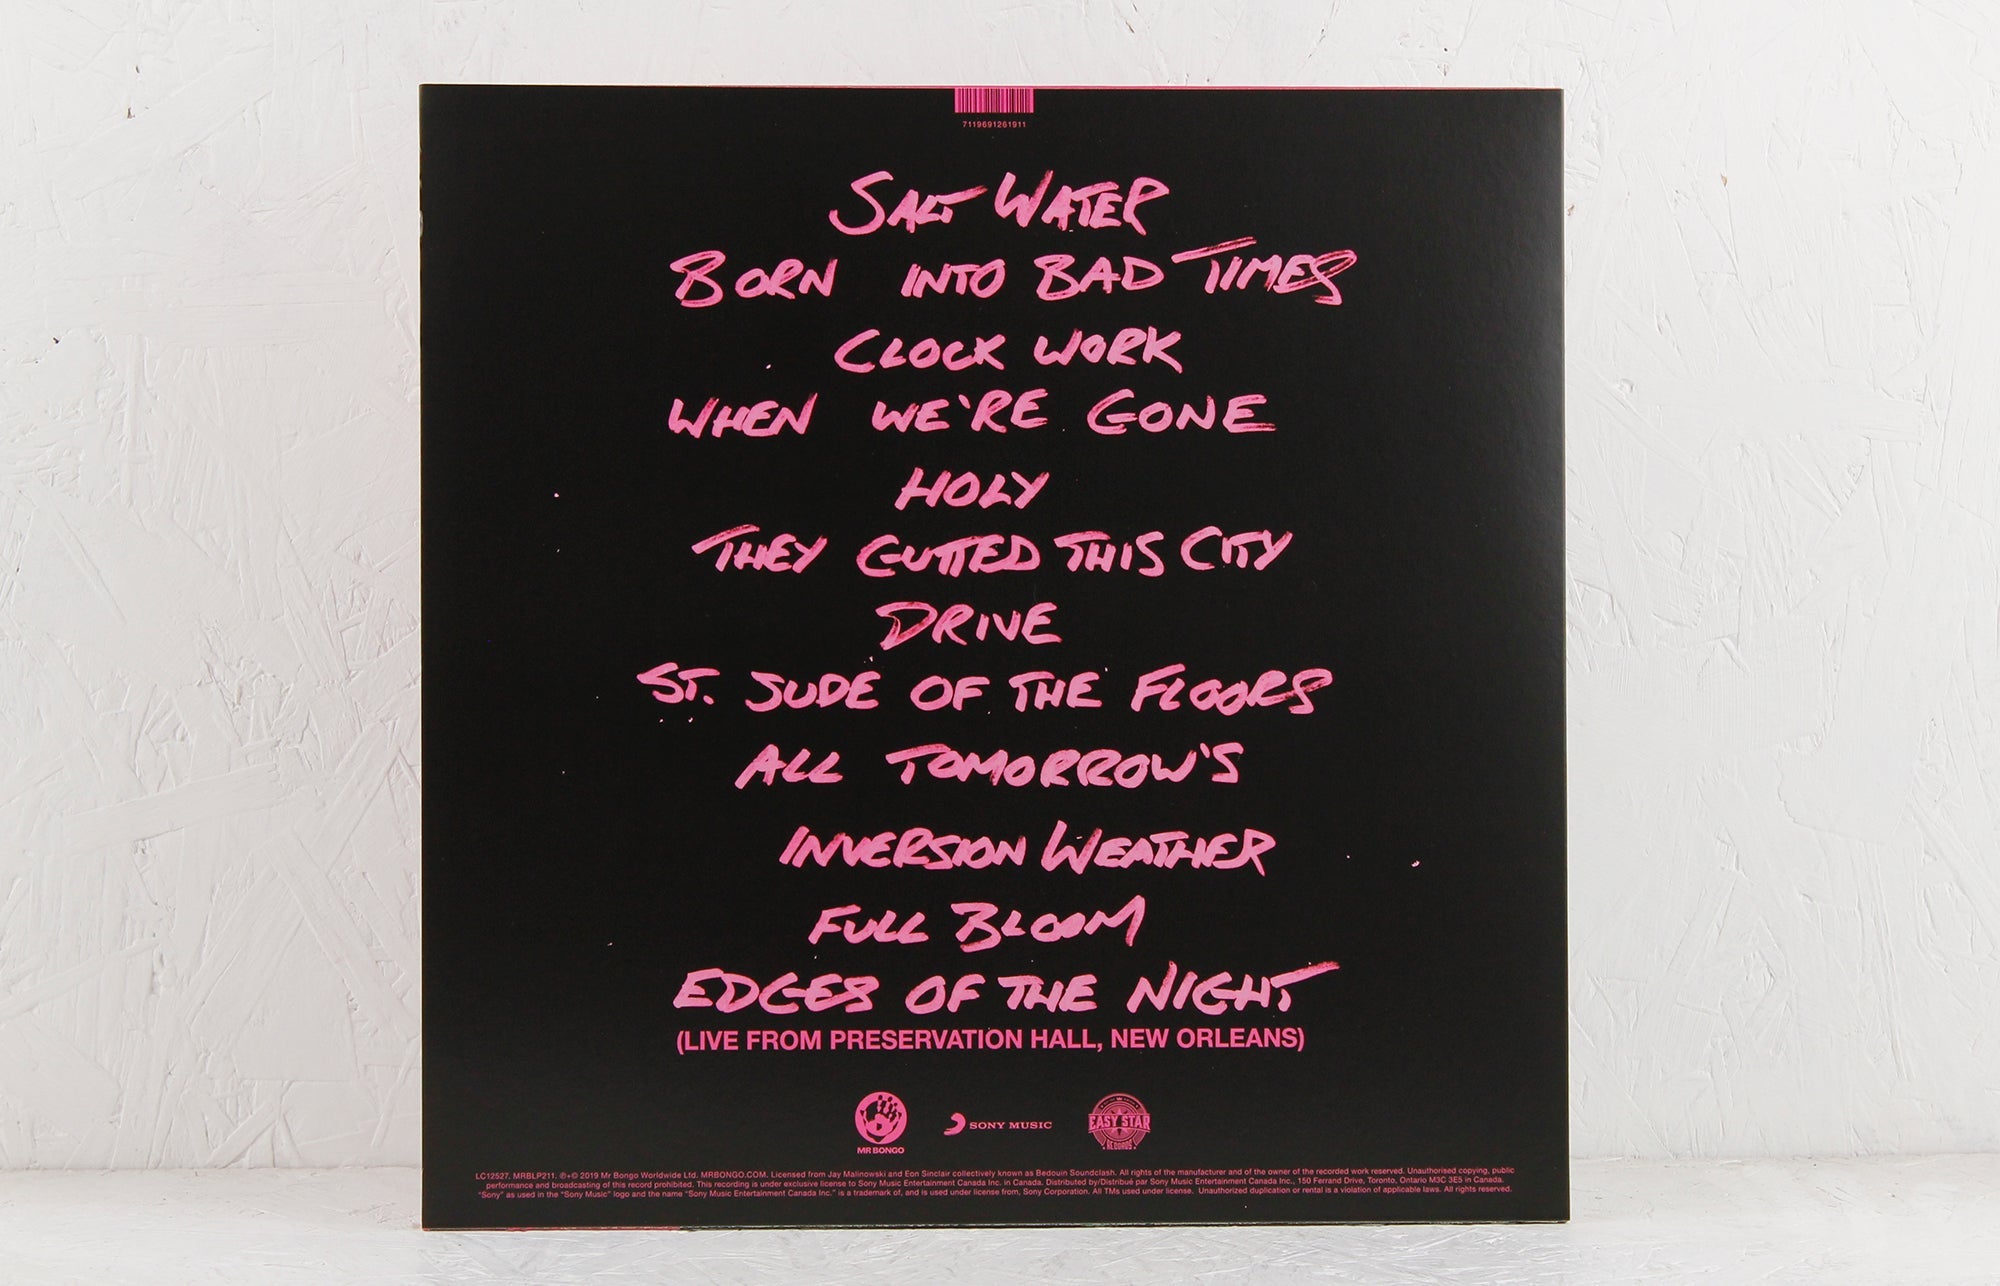 7119691261911
SALT WATER
BORN INTO BAD TIMES
CLOCK WORK
WHEN WE'RE GONE
HOLY
THEY GUTTED THIS CITY
DRIVE
ST. JUDE OF THE FLOORS
ALL TOMORROW'S
INVERSION WEATHER
FULL BLOOM
EDGES OF THE NIGHT
(LIVE FROM PRESERVATION HALL, NEW ORLEANS)
MR BONGO
SONY MUSIC
EASY STAR
RECORDS
LC12527. MRBLP211. ℗+© 2019 Mr Bongo Worldwide Ltd. MRBONGO.COM. Licensed from Jay Malinowski and Eon Sinclair collectively known as Bedouin Soundclash. All rights of the manufacturer and of the owner of the recorded work reserved. Unauthorised copying, public
performance and broadcasting of this record prohibited. This recording is under exclusive license to Sony Music Entertainment Canada Inc. in Canada. Distributed by/Distribué par Sony Music Entertainment Canada Inc., 150 Ferrand Drive, Toronto, Ontario M3C 3E5 in Canada.
"Sony" as used in the "Sony Music" logo and the name "Sony Music Entertainment Canada Inc." is a trademark of, and is used under license from, Sony Corporation. All TMs used under license. Unauthorized duplication or rental is a violation of applicable laws. All rights reserved.